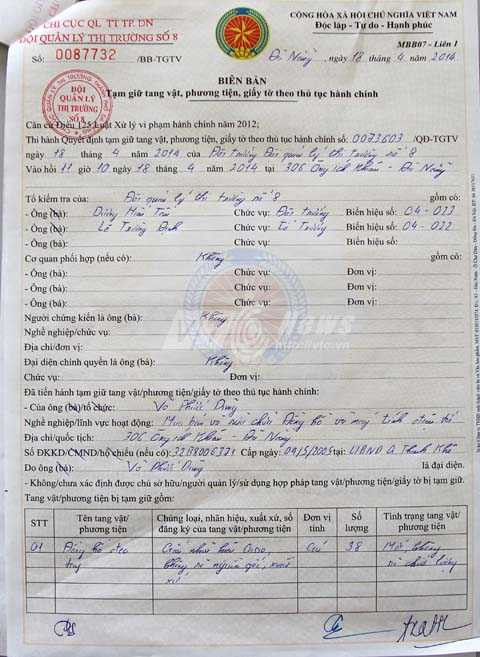 CHI CỤC QL TT TP. DN
ĐỘI QUẢN LÝ THỊ TRƯỜNG SỐ 8
Số: 0087732 /BB-TGTV
CỘNG HÒA XÃ HỘI CHỦ NGHĨA VIỆT NAM
Độc lập - Tự do - Hạnh phúc
MBB07 - Liên 1
Đà Nẵng, ngày 18 tháng 4 năm 2014
BIÊN BẢN
Tạm giữ tang vật, phương tiện, giấy tờ theo thủ tục hành chính
ĐỘI QUẢN LÝ THỊ TRƯỜNG SỐ 8
Căn cứ Điều 125 Luật Xử lý vi phạm hành chính năm 2012;
Thi hành Quyết định tạm giữ tang vật, phương tiện, giấy tờ theo thủ tục hành chính số: 0073603 /QĐ-TGTV
ngày 18 tháng 4 năm 2014 của Đội trưởng Đội quản lý thị trường số 8
Vào hồi 11 giờ 10 ngày 18 tháng 4 năm 2014 tại 306 Ông Ích Khiêm - Đà Nẵng
Tổ kiểm tra của: Đội quản lý thị trường số 8 gồm có:
- Ông (bà): Chức vụ: Đội trưởng Biển hiệu số: 04-033
- Ông (bà): Lê Trường Chức vụ: Tổ Trưởng Biển hiệu số: 04-022
- Ông (bà): Chức vụ: Biển hiệu số:
Cơ quan phối hợp (nếu có): Không gồm có:
- Ông (bà): Chức vụ: Đơn vị:
- Ông (bà): Chức vụ: Đơn vị:
- Ông (bà): Chức vụ: Đơn vị:
Người chứng kiến là ông (bà): Không
Nghề nghiệp/chức vụ:
Địa chỉ/đơn vị:
Đại diện chính quyền là ông (bà): Không
Chức vụ: Đơn vị:
Đã tiến hành tạm giữ tang vật/phương tiện/giấy tờ theo thủ tục hành chính:
- Của ông (bà)/tổ chức: Võ Phước Dũng
Nghề nghiệp/lĩnh vực hoạt động: Mua bán và sửa chữa Đồng hồ và máy tính điện tử
Địa chỉ/quốc tịch: 306 Ông Ích Khiêm - Đà Nẵng
Số ĐKKD/CMND/hộ chiếu (nếu có): Cấp ngày: 04/5/2005 tại: UBND Q. Thanh Khê
Do ông (bà): Võ Phước Dũng là đại diện.
- Không/chưa xác định được chủ sở hữu/người quản lý/sử dụng hợp pháp tang vật/phương tiện/giấy tờ bị tạm giữ.
Tang vật/phương tiện bị tạm giữ gồm:
STT Tên tang vật/ phương tiện Chủng loại, nhãn hiệu, xuất xứ, số đăng ký của tang vật/phương tiện Đơn vị tính Số lượng Tình trạng tang vật/ phương tiện
01 Đồng hồ đeo tay không rõ nguồn gốc, xuất xứ Cái 38 Mới không rõ chất lượng